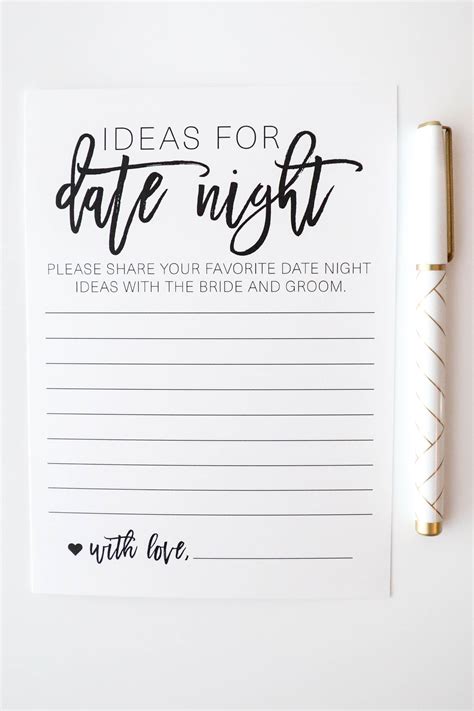 IDEAS FOR
date night
PLEASE SHARE YOUR FAVORITE DATE NIGHT
IDEAS WITH THE BRIDE AND GROOM.
with love,